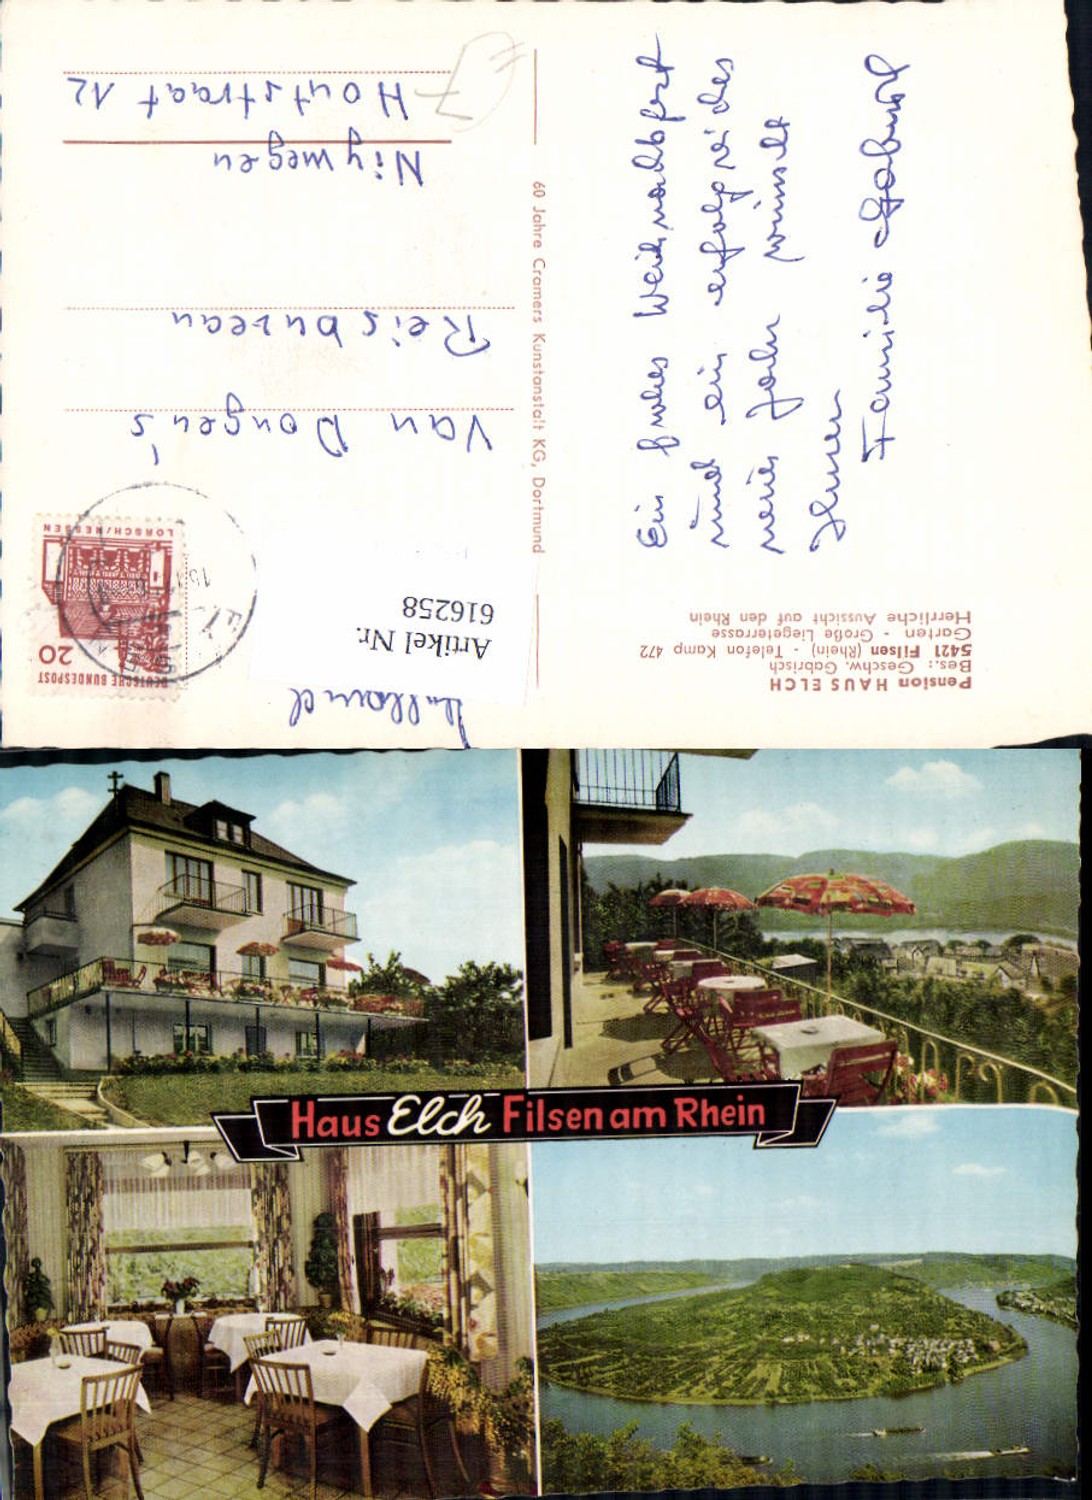 Pension HAUS ELCH
Bes.: Geschw. Gabrisch
5421 Filsen (Rhein) - Telefon Kamp 472
Garten - Große Liegeterrasse
Herrliche Aussicht auf den Rhein
Ein frohes Weihnachtsfest
und ein erfolgreiches
neues Jahr wünscht
Ihnen
Familie Gabrisch
60 Jahre Cramers Kunstanstalt KG, Dortmund
DEUTSCHE BUNDESPOST
20
LORSCH/HESSEN
Artikel Nr.
616258
Van Dongen's
Reisbureau
Nijmegen
Houtstraat 12
Holland
Haus Elch Filsen am Rhein